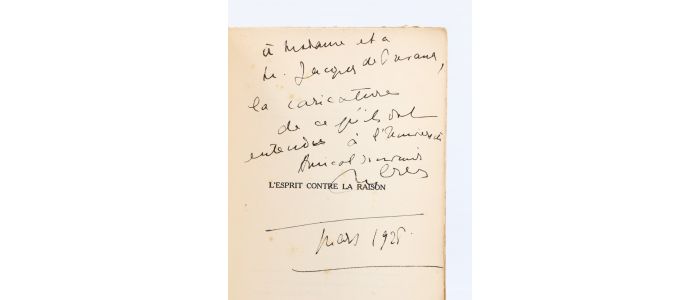 à Madame et à
M. Jacques de
la caricature
de ce qu'ils ont
entendu à l'Université
Amical souvenir
L'ESPRIT CONTRE LA RAISON
mars 1928.